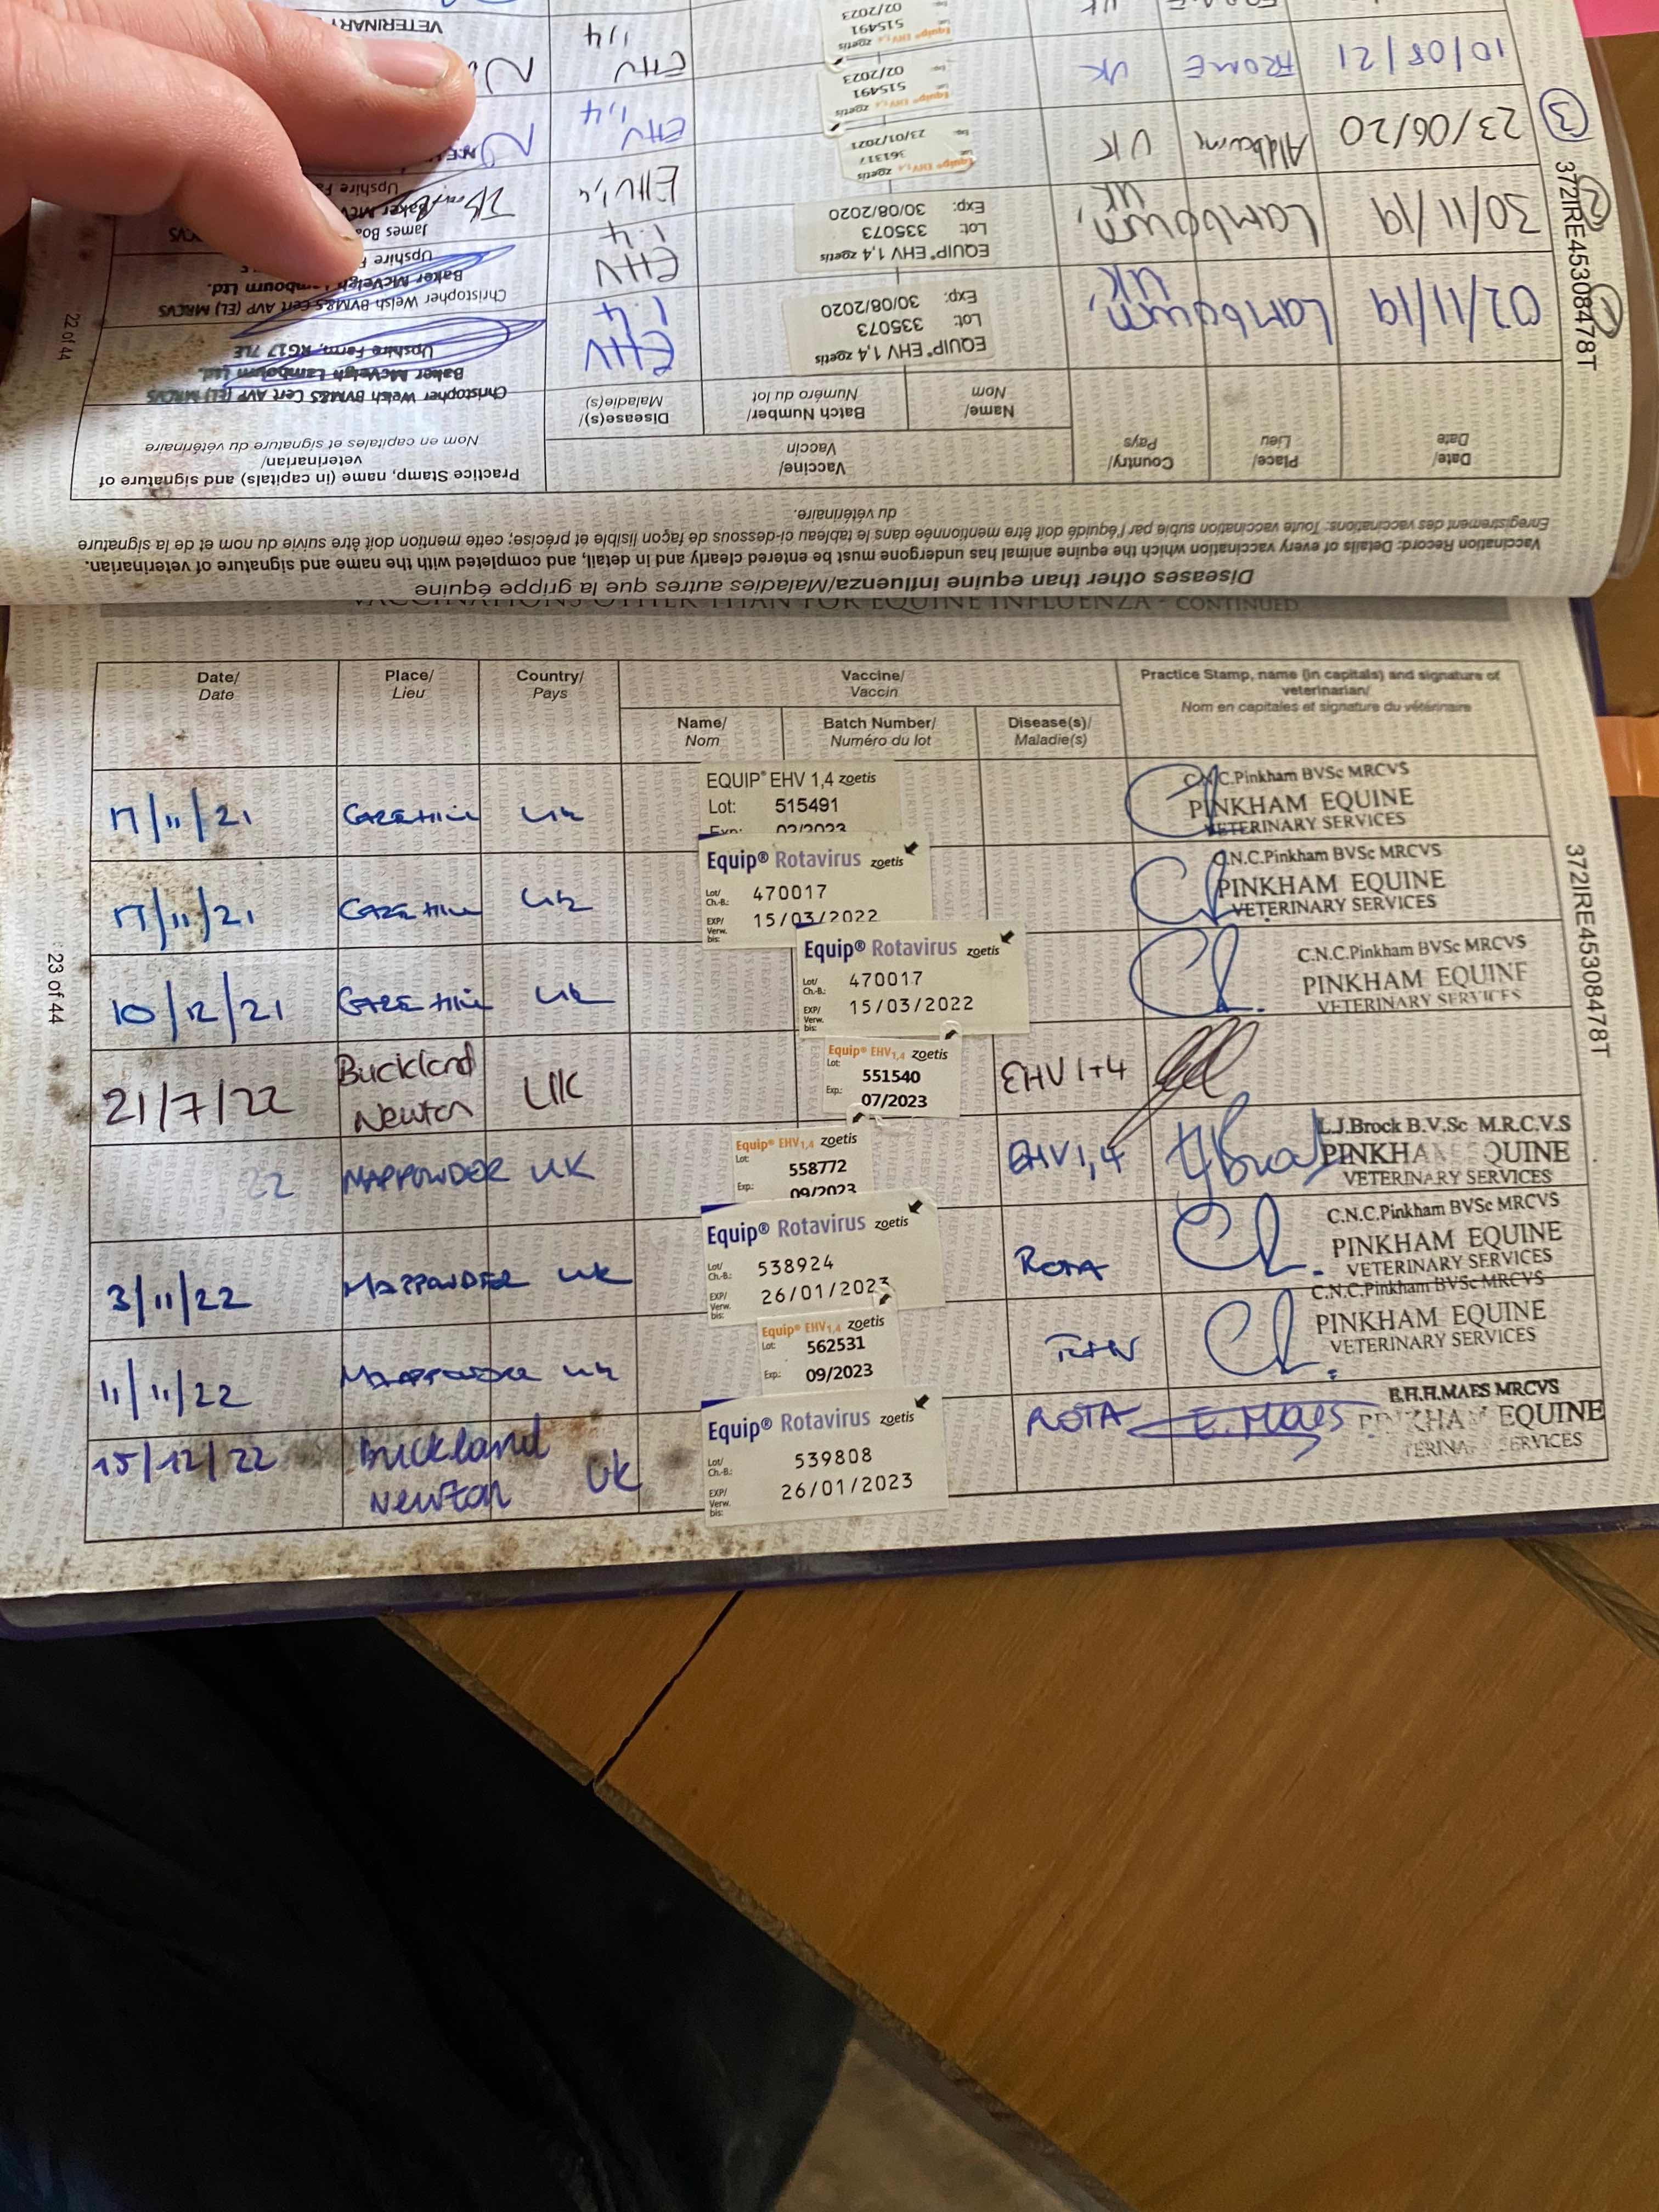 Diseases other than equine influenza/Maladies autres que la grippe équine
Vaccination Record: Details of every vaccination which the equine animal has undergone must be entered clearly and in detail, and completed with the name and signature of veterinarian.
Enregistrement des vaccinations: Toute vaccination subie par l'équidé doit être mentionnée dans le tableau ci-dessous de façon lisible et précise; cette mention doit être suivie du nom et de la signature
du vétérinaire.
Date/
Date
Place/
Lieu
Country/
Pays
Vaccine/
Vaccin
Name/
Nom
Batch Number/
Numéro du lot
Disease(s)/
Maladie(s)
Practice Stamp, name (in capitals) and signature of
veterinarian/
Nom en capitales et signature du vétérinaire
① 02/11/19 Lambourn, UK
EQUIP® EHV 1,4 zoetis
Lot: 335073
Exp: 30/08/2020
EHV 1.4
Christopher Welsh BVM&S Cert AVP (EL) MRCVS
Baker McVeigh Lambourn Ltd.
Upshire Farm, RG17 7LE
② 30/11/19 Lambourn, UK
EQUIP® EHV 1,4 zoetis
Lot: 335073
Exp: 30/08/2020
EHV 1.4
Christopher Welsh BVM&S Cert AVP (EL) MRCVS
Baker McVeigh Lambourn Ltd.
Upshire
③ 23/06/20 Aldbourne UK
Equip® EHV 1,4 zoetis
Lot: 361317
Exp: 23/01/2021
EHV 1,4
James
Baker
Upshire
10/08/21 FROME UK
Equip® EHV 1,4 zoetis
515491
02/2023
EHV 1,4
UK
Equip® EHV 1,4 zoetis
515491
02/2023
EHV 1,4
VETERINARY
22 of 44
372IRE45308478T
VACCINATIONS OTHER THAN FOR EQUINE INFLUENZA - CONTINUED
Date/
Date
Place/
Lieu
Country/
Pays
Vaccine/
Vaccin
Name/
Nom
Batch Number/
Numéro du lot
Disease(s)/
Maladie(s)
Practice Stamp, name (in capitals) and signature of
veterinarian/
Nom en capitales et signature du vétérinaire
17/11/21 UK
EQUIP® EHV 1,4 zoetis
Lot: 515491
Exp: 02/2023
C.N.C.Pinkham BVSc MRCVS
PINKHAM EQUINE
VETERINARY SERVICES
17/11/21 UK
Equip® Rotavirus zoetis
Lot/
Ch.-B.: 470017
EXP/
Verw.
bis: 15/03/2022
C.N.C.Pinkham BVSc MRCVS
PINKHAM EQUINE
VETERINARY SERVICES
10/12/21 UK
Equip® Rotavirus zoetis
Lot/
Ch.-B.: 470017
EXP/
Verw.
bis: 15/03/2022
C.N.C.Pinkham BVSc MRCVS
PINKHAM EQUINE
VETERINARY SERVICES
21/7/22 Buckland Newton UK
Equip® EHV1,4 zoetis
Lot: 551540
Exp.: 07/2023
EHV 1+4
22 MAPPOWDER UK
Equip® EHV1,4 zoetis
Lot: 558772
Exp.: 09/2023
EHV 1,4
L.J.Brock B.V.Sc M.R.C.V.S
PINKHAM EQUINE
VETERINARY SERVICES
3/11/22 MAPPOWDER UK
Equip® Rotavirus zoetis
Lot/
Ch.-B.: 538924
EXP/
Verw.
bis: 26/01/2023
ROTA
C.N.C.Pinkham BVSc MRCVS
PINKHAM EQUINE
VETERINARY SERVICES
11/11/22 MAPPOWDER UK
Equip® EHV1,4 zoetis
Lot: 562531
Exp.: 09/2023
C.N.C.Pinkham BVSc MRCVS
PINKHAM EQUINE
VETERINARY SERVICES
15/12/22 Buckland Newton UK
Equip® Rotavirus zoetis
Lot/
Ch.-B.: 539808
EXP/
Verw.
bis: 26/01/2023
ROTA
E. Maes
E.H.H.MAES MRCVS
PINKHAM EQUINE
VETERINARY SERVICES
23 of 44
372IRE45308478T